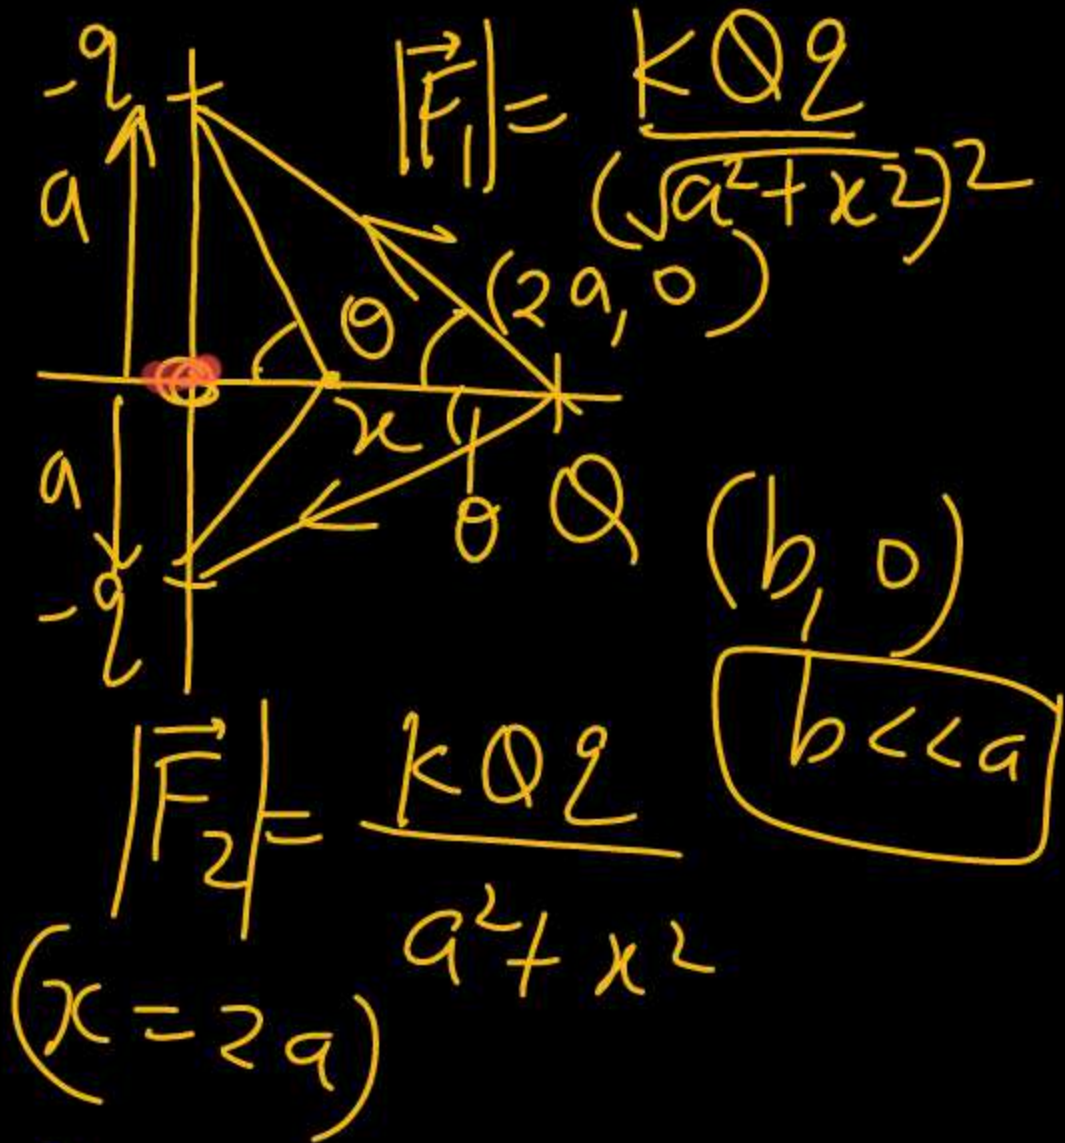 -q
|F⃗₁| = kQq / (√(a²+x²))²
a
θ
(2a, 0)
x
a
θ
Q
-q
(b, 0)
b<<a
|F⃗₂| = kQq / a²+x²
(x = 2a)